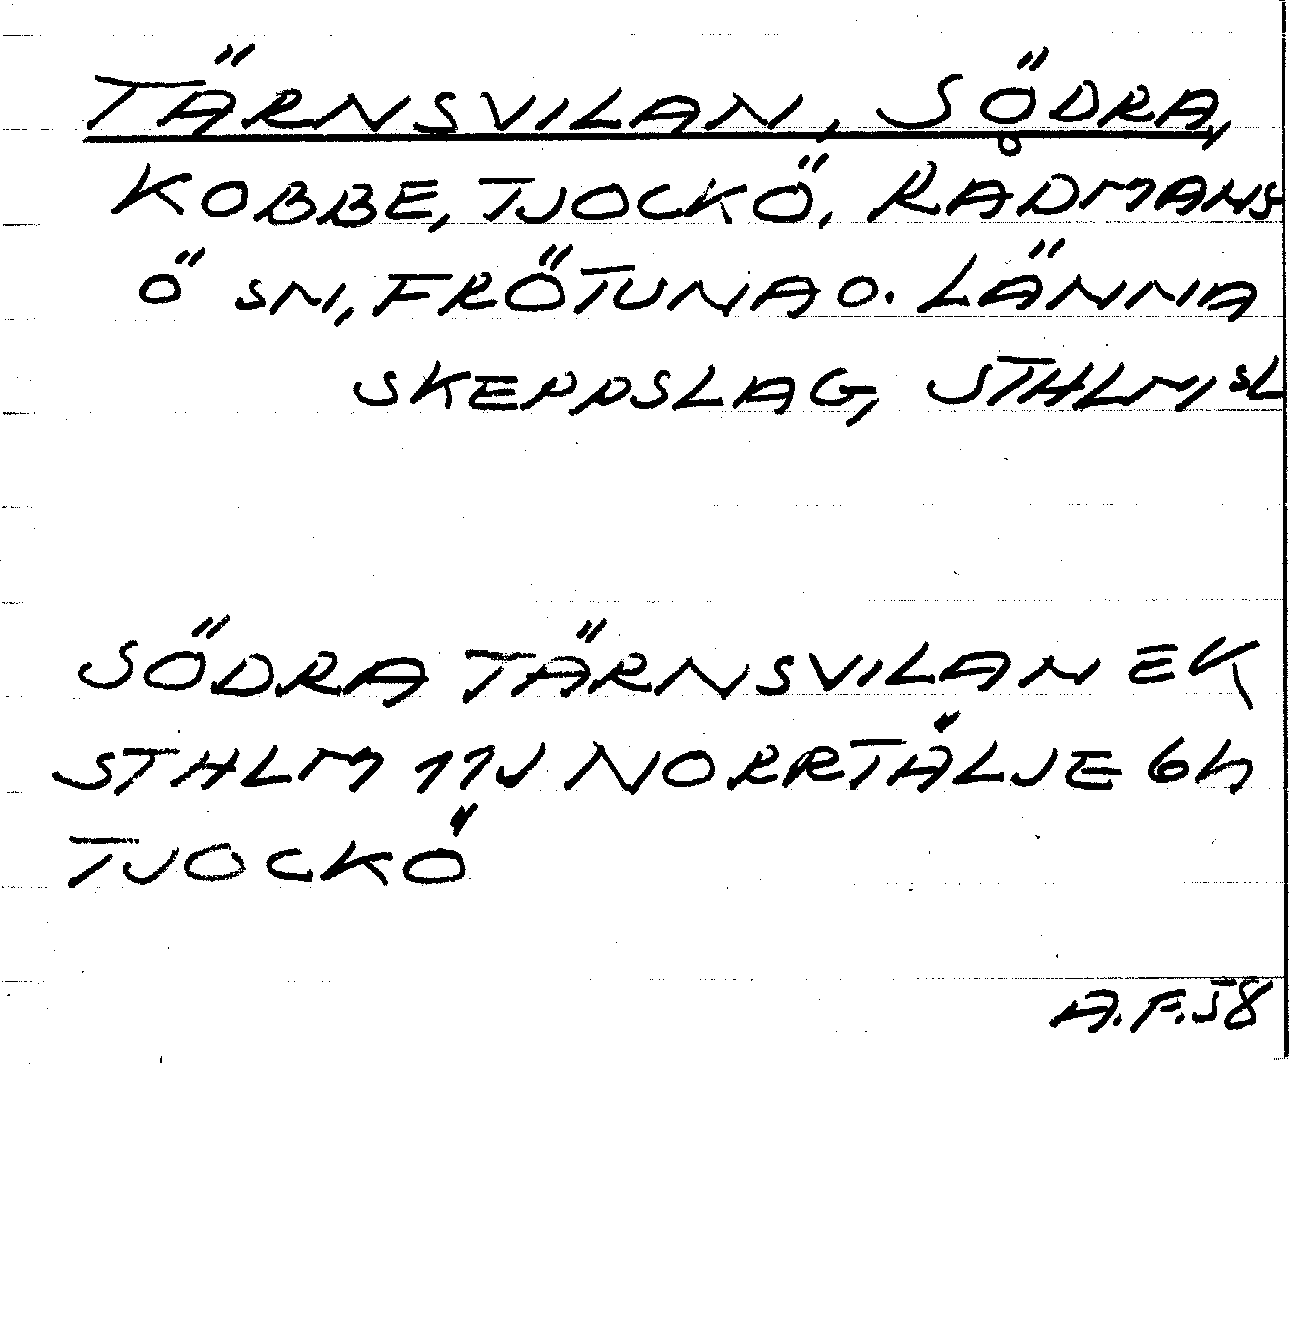 TÄRNSVILAN, SÖDRA,
KOBBE, TJOCKÖ, RÅDMANS
Ö SN, FRÖTUNA O. LÄNNA
SKEPPSLAG, STHLMSL
SÖDRA TÄRNSVILAN EK
STHLM 11J NORRTÄLJE 6h
TJOCKÖ
A.F.58